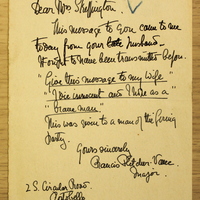 Dear Mrs Sheffington
This message to you came to me
today from your late husband.
Ought to have been transmitted before.
"Give this message to my wife"
"I die innocent and I die as a"
"brave man"
This was given to a man of the firing
party
Yours sincerely
Francis Fletcher Vane
Major.